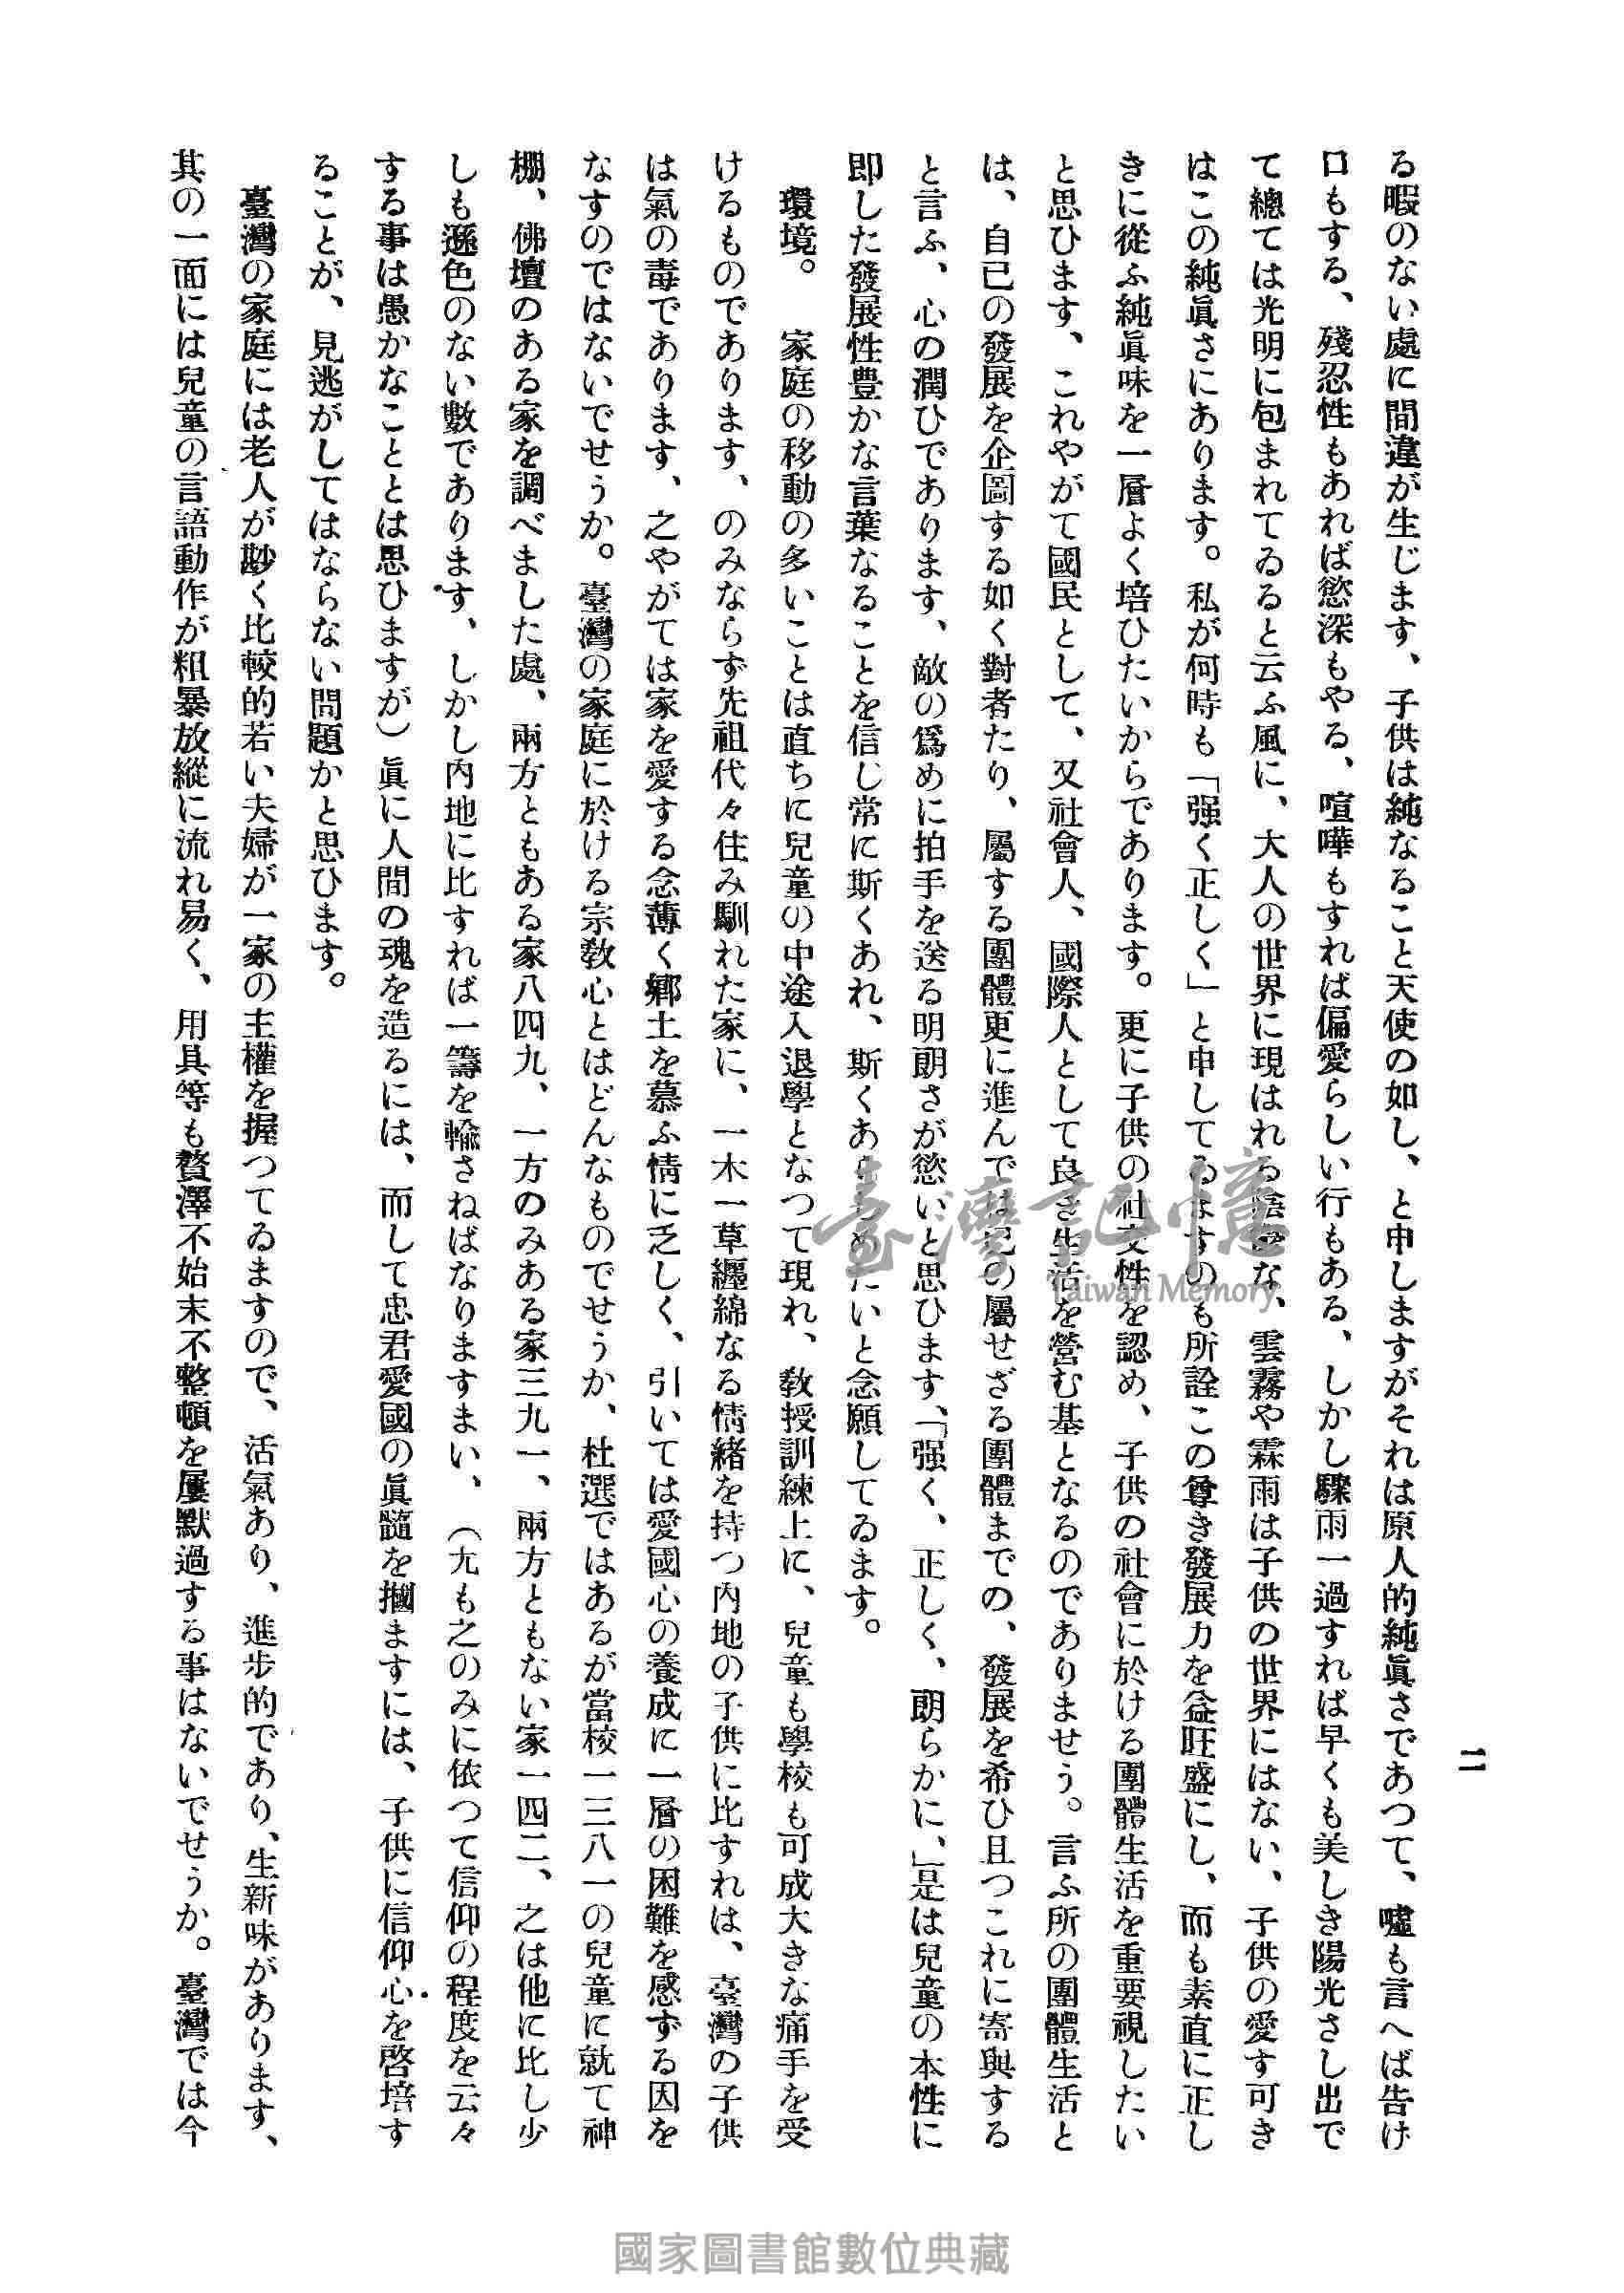 二
る暇のない處に間違が生じます、子供は純なること天使の如し、と申しますがそれは原人的純眞さであつて、噓も言へば告け
口もする、殘忍性もあれば慾深もやる、喧嘩もすれば偏愛らしい行もある、しかし驟雨一過すれば早くも美しき陽光さし出で
て總ては光明に包まれてゐると云ふ風に、大人の世界に現はれる な、雲霧や霖雨は子供の世界にはない、子供の愛す可き
はこの純眞さにあります。私が何時も「强く正しく」と申してゐますのも所詮この尊き發展力を益旺盛にし、而も素直に正し
きに從ふ純眞味を一層よく培ひたいからであります。更に子供の社交性を認め、子供の社會に於ける團體生活を重要視したい
と思ひます、これやがて國民として、又社會人、國際人として良き生活を營む基となるのでありませう。言ふ所の團體生活と
は、自己の發展を企圖する如く對者たり、屬する團體更に進んでは己の屬せざる團體までの、發展を希ひ且つこれに寄與する
と言ふ、心の潤ひであります、敵の爲めに拍手を送る明朗さが慾いと思ひます、「强く、正しく、朗らかに、」是は兒童の本性に
即した發展性豊かな言葉なることを信じ常に斯くあれ、斯くあらしめたいと念願してゐます。
環境。　家庭の移動の多いことは直ちに兒童の中途入退學となつて現れ、敎授訓練上に、兒童も學校も可成大きな痛手を受
けるものであります、のみならず先祖代々住み馴れた家に、一木一草纒綿なる情緒を持つ内地の子供に比すれは、臺灣の子供
は氣の毒であります、之やがては家を愛する念薄く鄕土を慕ふ情に乏しく、引いては愛國心の養成に一層の困難を感ずる因を
なすのではないでせうか。臺灣の家庭に於ける宗敎心とはどんなものでせうか、杜選ではあるが當校一三八一の兒童に就て神
棚、佛壇のある家を調べました處、兩方ともある家八四九、一方のみある家三九一、兩方ともない家一四二、之は他に比し少
しも遜色のない數であります、しかし内地に比すれば一籌を輸さねばなりますまい、（尤も之のみに依つて信仰の程度を云々
する事は愚かなこととは思ひますが）眞に人間の魂を造るには、而して忠君愛國の眞髓を摑ますには、子供に信仰心を啓培す
ることが、見逃がしてはならない問題かと思ひます。
臺灣の家庭には老人が尠く比較的若い夫婦が一家の主權を握つてゐますので、活氣あり、進步的であり、生新味があります、
其の一面には兒童の言語動作が粗暴放縱に流れ易く、用具等も贅澤不始末不整頓を屢默過する事はないでせうか。臺灣では今
臺灣記憶
Taiwan Memory
國家圖書館數位典藏